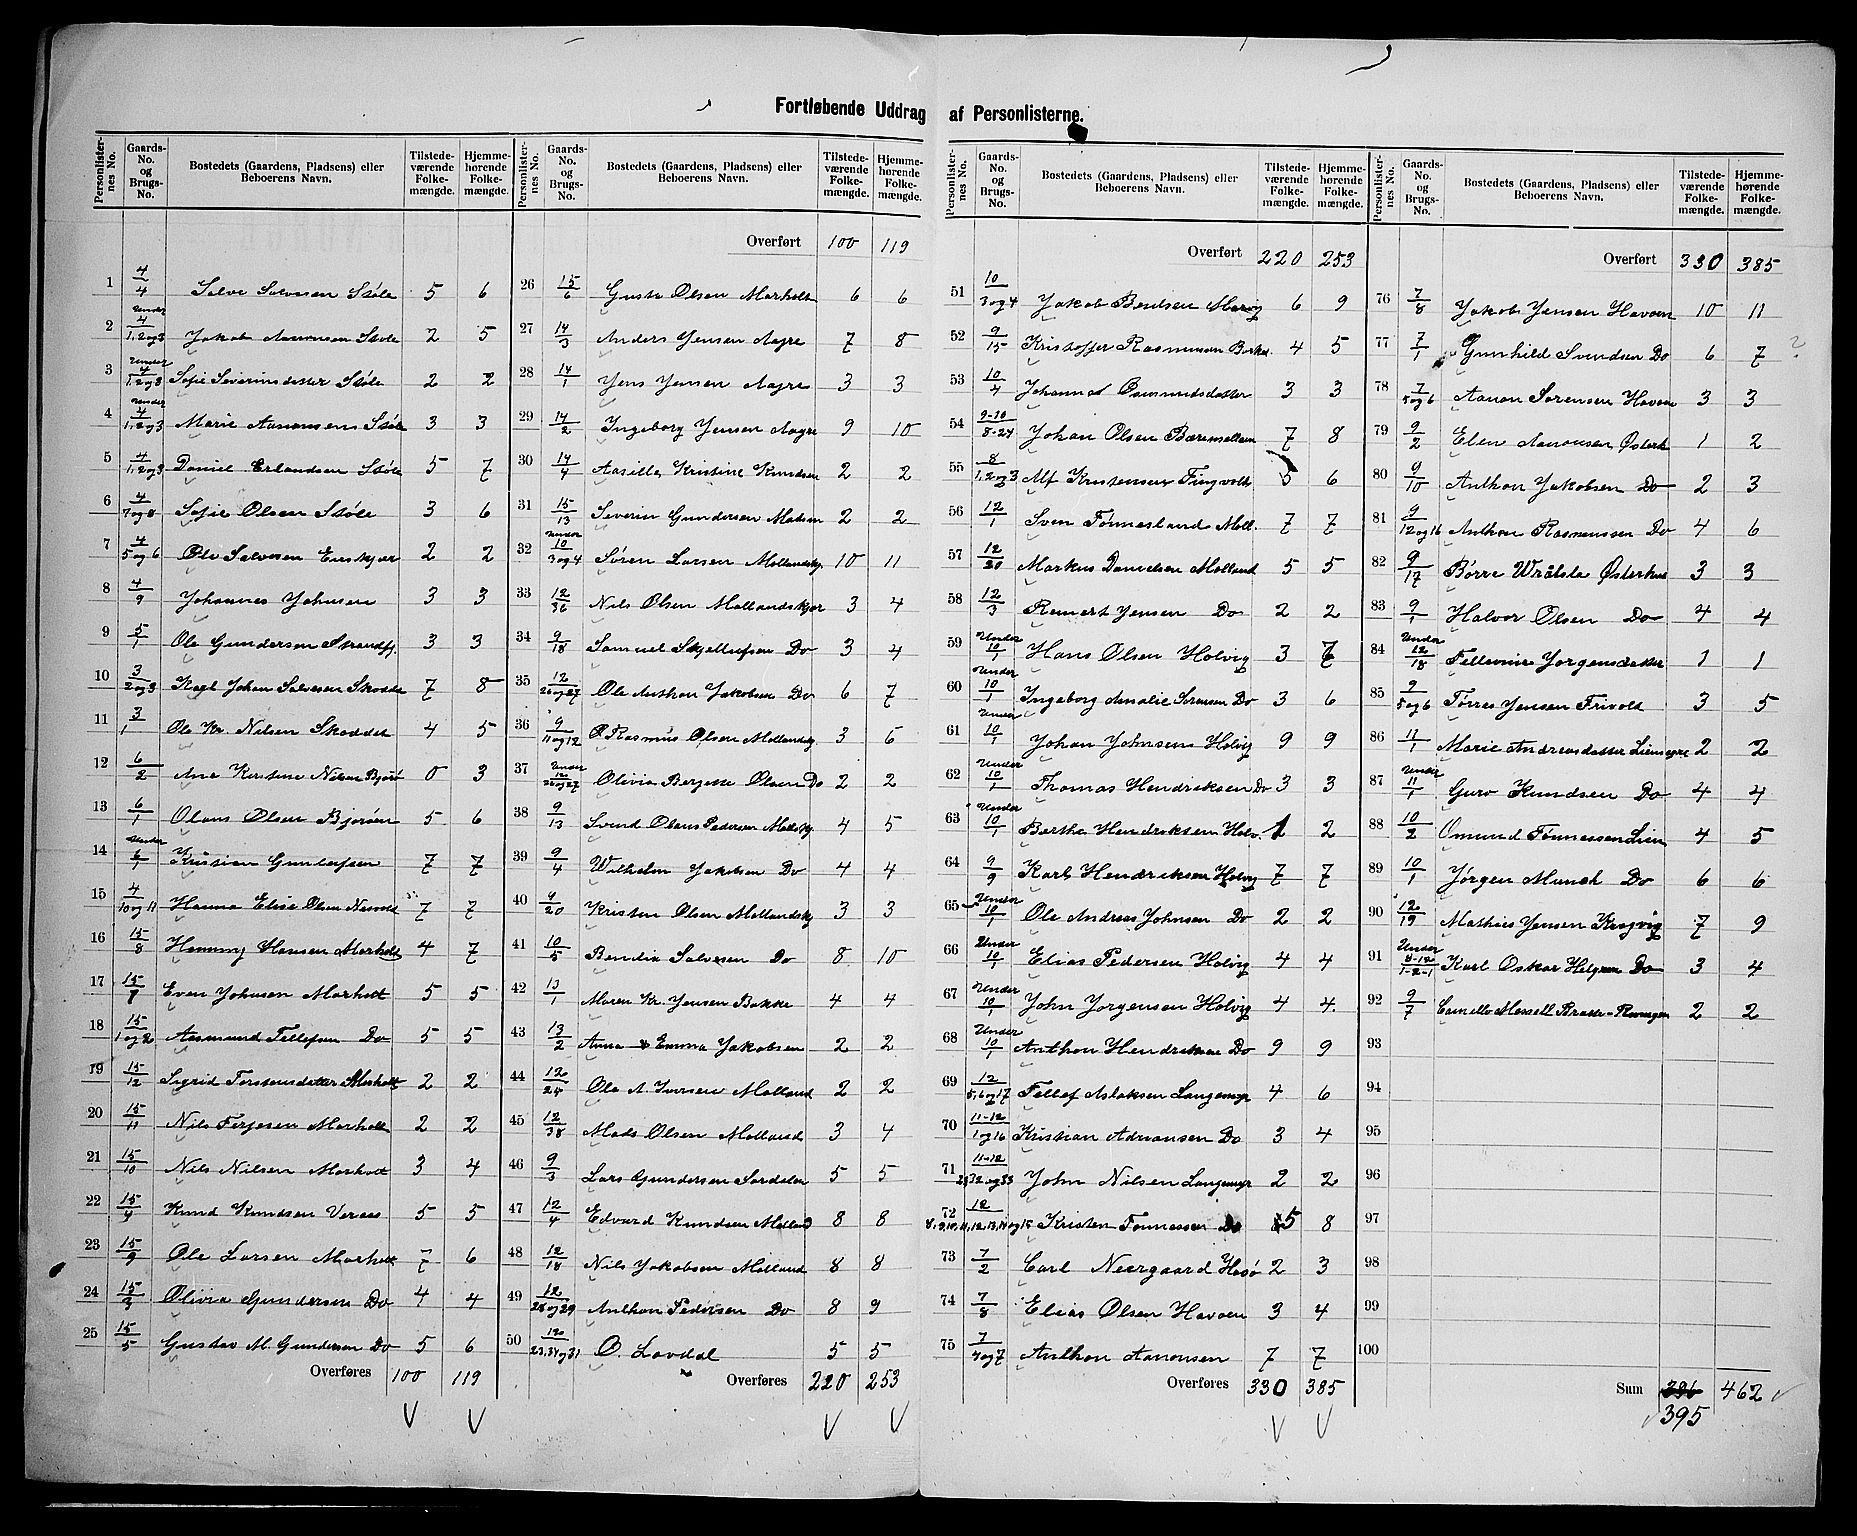 Fortløbende Uddrag af Personlisterne.
Personlisternes No. Gaards-No. og Brugs-No. Bostedets (Gaardens, Pladsens) eller Beboerens Navn. Tilstedeværende Folkemængde. Hjemmehørende Folkemængde.
1 4/4 Salve Salvesen Støle 5 6
2 Under 4/1,2og3 Jakob Aanonsen Støle 2 5
3 Under 4/1,2og3 Sofie Severinsdatter Støle 2 2
4 Under 4/1,2og3 Marie Aanonsens Støle 3 3
5 4/1,2og3 Daniel Erlandsen Støle 5 7
6 4/7og8 Sofie Olsen Støle 3 6
7 4/5og6 Ole Salvesen Enskjær 2 2
8 4/9 Johannes Johnsen 3 3
9 5/1 Ole Gundersen Strandfj. 3 3
10 3/2og3 Karl Johan Salvesen Skodde 7 8
11 3/1 Ole Kr. Nilsen Skoddet 4 5
12 6/2 Ane Kirstine Nilsen Bjorø 0 3
13 6/1 Olaus Olsen Bjorøen 5 6
14 Under 6/1 Kristian Gunleifsen 7 7
15 4/10og11 Hanna Elise Olsen 7 7
16 15/8 Henning Hansen Morholt 4 7
17 15/7 Even Johnsen Morholt 5 5
18 15/1og2 Aasmund Tellefsen Do 5 5
19 15/12 Sigrid Torstensdatter Morholt 2 2
20 15/11 Nils Terjesen Morholt 2 2
21 15/10 Nils Nilsen Morholt 3 4
22 15/4 Knud Knudsen 5 5
23 15/9 Ole Larsen Morholt 7 6
24 15/3 Olivia Gundersen Do 4 4
25 15/5 Gustav M. Gundersen Do 5 6
Overføres 100 119
Personlisternes No. Gaards-No. og Brugs-No. Bostedets (Gaardens, Pladsens) eller Beboerens Navn. Tilstedeværende Folkemængde. Hjemmehørende Folkemængde.
Overført 100 119
26 15/6 Gusta Olsen Morholt 6 6
27 14/3 Anders Jensen Aagre 7 8
28 14/1 Jens Jensen Aagre 3 3
29 14/2 Ingeborg Jensen Aagre 9 10
30 14/4 Aasille Kristine Knudsen 2 2
31 15/13 Severin Gundersen Madsen 2 2
32 Under 10/3og4 Søren Larsen Mollandskj. 10 11
33 12/36 Nils Olsen Mollandskjær 3 4
34 9/18 Samuel Skjellufsen Do 3 4
35 12/26og27 Ole Anthon Jakobsen Do 6 7
36 9/11og12 Rasmus Olsen Mollandskj. 3 6
37 Under 12/26og27 Olivia Bergitte Olsen Do 2 2
38 9/13 Svend Olaus Pedersen Mollskj. 4 5
39 9/4 Wilhelm Jakobsen Do 4 4
40 9/20 Kristen Olsen Mollandskj 3 3
41 10/5 Bendix Salvesen Do 8 10
42 13/1 Maren Kr. Jensen Bakke 4 4
43 13/2 Anna & Emma Jakobsen 2 2
44 12/25 Ole A. Iversen Molland 2 2
45 12/38 Mads Olsen Molland 3 4
46 9/3 Lars Gundersen Sørdelen 5 5
47 12/4 Edvard Knudsen Molland 8 8
48 12/18 Nils Jakobsen Molland 8 8
49 12/28og29 Anthon Pedersen Do 8 9
50 12/23,34og31 O Løvdal 5 5
Overføres 220 253
Personlisternes No. Gaards-No. og Brugs-No. Bostedets (Gaardens, Pladsens) eller Beboerens Navn. Tilstedeværende Folkemængde. Hjemmehørende Folkemængde.
Overført 220 253
51 10/3og4 Jakob Bentsen 6 9
52 9/15 Kristoffer Rasmussen 4 5
53 10/4 Johanna Osmundsdatter 3 3
54 9-10/8-24 Johan Olsen 7 8
55 8/1,2og3 Alf Kristensen Tingvold 5 6
56 12/1 Sven Tønnesland Moll. 7 7
57 12/20 Markus Danielsen Molland 5 5
58 12/3 Reinert Jensen Do 2 2
59 Under 10/1 Hans Olsen Holvig 3 7
60 Under 10/1 Ingeborg Amalie Sørensen Do 3 6
61 Under 10/1 Johan Johnsens Holvig 9 9
62 Under 10/1 Thomas Hendriksen Do 3 3
63 Under 10/1 Berthe Hendriksen Holv. 1 2
64 9/9 Karl Hendriksen Holvig 7 7
65 Under 10/1 Ole Andreas Johnsen Do 2 2
66 Under 10/1 Elias Pedersen Holvig 4 4
67 Under 10/1 John Jørgensen Holvig 4 4
68 Under 10/1 Anthon Hendriksen Do 9 9
69 12/5,6og17 Tellef Aslaksen Langemyr 4 6
70 11-12/1og16 Kristian Adriansen Do 3 4
71 11-12/2,32og33 John Nilsen Langemyr 2 2
72 12/8,9,10,11,12,13,14og15 Kristen Tønnessen Do 5 8
73 7/2 Carl Neergaard Hesø 2 3
74 7/8 Elias Olsen Havøen 3 4
75 7/4og7 Anthon Aanonsen 7 7
Overføres 330 385
Personlisternes No. Gaards-No. og Brugs-No. Bostedets (Gaardens, Pladsens) eller Beboerens Navn. Tilstedeværende Folkemængde. Hjemmehørende Folkemængde.
Overført 330 385
76 7/8 Jakob Jensen Havøen 10 11
77 7/1 Gunhild Svendsen Do 6 7 ?
78 7/5og6 Aanon Sørensen Havøen 3 3
79 9/2 Elen Aanonsen Østerh 1 2
80 9/10 Anthon Jakobsen Do 2 3
81 9/12og16 Anthon Rasmussen Do 4 6
82 9/17 Børre Wrålsta Østerhus 3 3
83 9/1 Halvor Olsen Do 4 4
84 Under 12/18 Tellevine Jørgensdatter 1 1
85 9/5og6 Tørres Jensen Frivold 3 5
86 11/1 Marie Andreasdatter 2 2
87 Under 11/1 Guro Knudsen Do 4 4
88 10/2 Omund Tønnessen Lien 4 5
89 10/1 Jørgen Munch Do 6 6
90 12/19 Mathias Jensen Krogvig 7 9
91 Under 8-12/1-2-1 Karl Oskar Helgesen Do 3 4
92 9/7 2 2
93
94
95
96
97
98
99
100
Sum 396 462
395